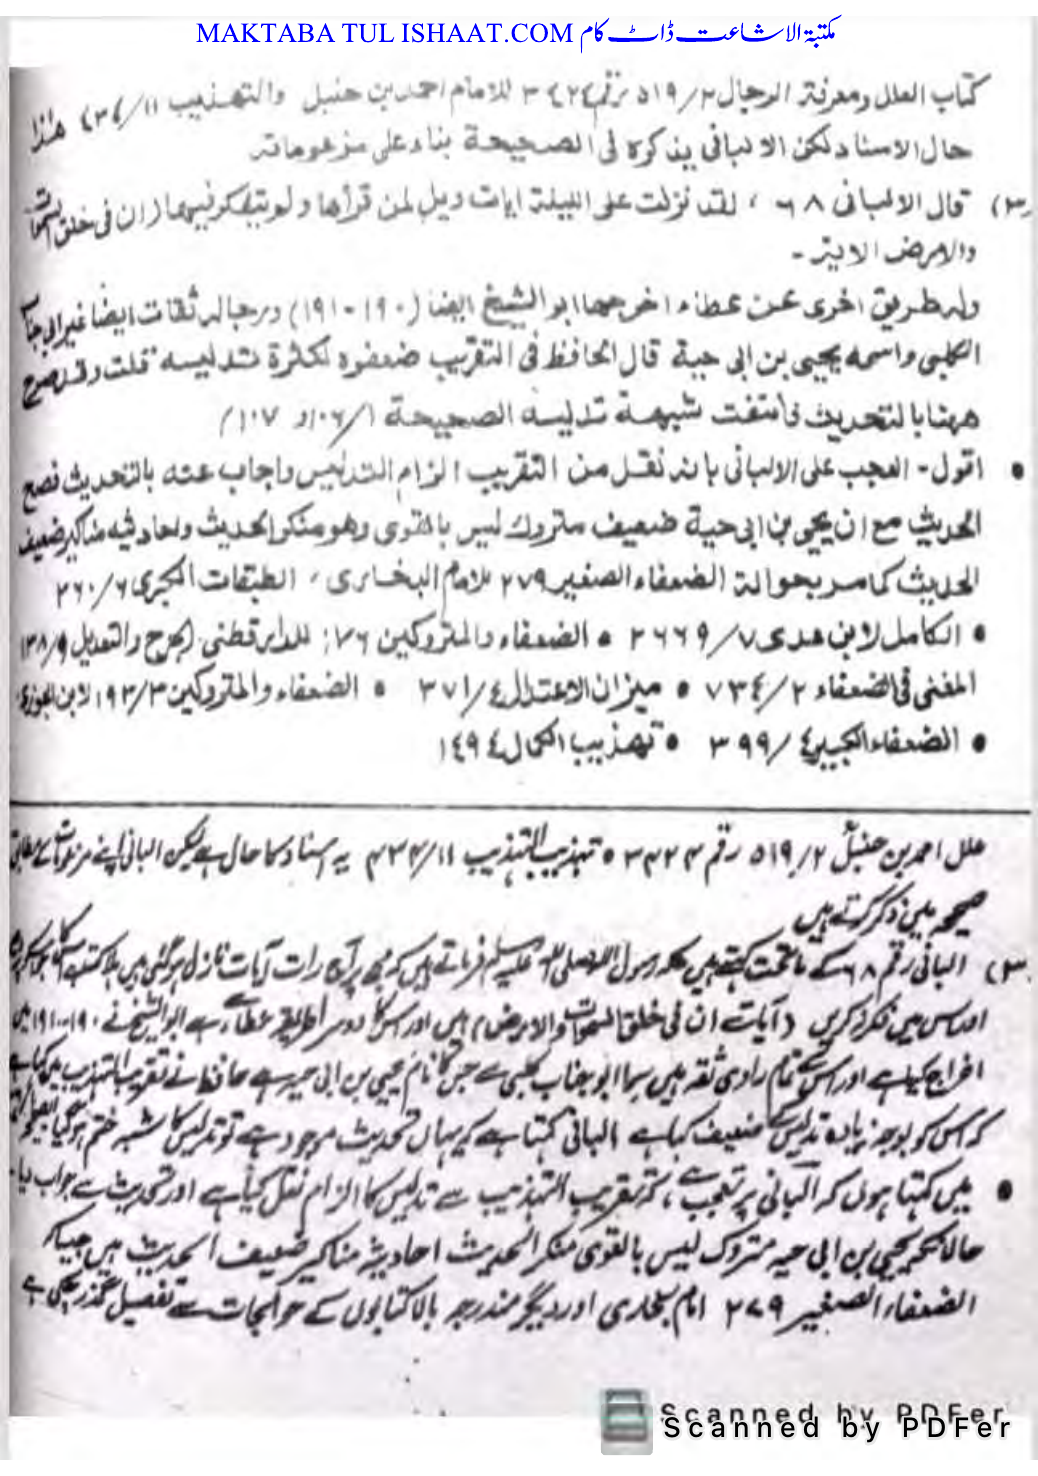 MAKTABA TUL ISHAAT.COM مکتبۃ الاشاعت ڈاٹ کام
کتاب العلل ومعرفۃ الرجال ۵۱۹/۲ رقم ۳٤۲٤ للامام احمد بن حنبل والتھذیب ۱۱/٤۳٤ ھٰذا
حال الاسناد لکن الالبانی یذکرہ فی الصحیحۃ بناء علی مزعوماتہ
(۳) قال الالبانی ۶۸ ، لقد نزلت علی اللیلۃ ایات ویل لمن قرأھا ولم یتفکر فیھا ان فی خلق السمٰوات
والارض الایۃ -
ولہ طریق اخری عن عطاء اخرجھا ابو الشیخ ایضا (۱۹۰-۱۹۱) ورجالہ ثقات ایضا غیر ابی جناب
الکلبی واسمہ یحیی بن ابی حیۃ قال الحافظ فی التقریب ضعفوہ لکثرۃ تدلیسہ قلت وقد صرح
ھھنا بالتحدیث فانتفت شبھۃ تدلیسہ الصحیحۃ ۱/۱۰۶ و ۱۰۷)
• اقول - العجب علی الالبانی بانہ نقل من التقریب الزام التدلیس واجاب عنہ بالتحدیث فصح
الحدیث مع ان یحیی بن ابی حیۃ ضعیف متروک لیس بالقوی وھو منکر الحدیث واحادیثہ مناکیر ضعیف
الحدیث کما مر بحوالۃ الضعفاء الصغیر ۲۷۹ للامام البخاری ، الطبقات الکبری ۶/۳۶۰
• الکامل لابن عدی ۷/۲۶۶۹ • الضعفاء والمتروکین ۱۷۶ للدارقطنی الجرح والتعدیل ۱۳۸/۹
المغنی فی الضعفاء ۲/۷۳٤ • میزان الاعتدال ٤/۳۷۱ • الضعفاء والمتروکین ۱۹۳/۳ لابن الجوزی
• الضعفاء الکبیر ٤/۳۹۹ • تھذیب الکمال ۱٤۹٤
علل احمد بن حنبل ۵۱۹/۲ رقم ۳۴۲۴ • تہذیب التہذیب ۱۱/۴۳۴ یہ اسناد کا حال ہے لیکن البانی اپنے مزعومات کے مطابق
صحیحہ میں ذکر کرتے ہیں
(۳) البانی رقم ۶۸ کے ماتحت کہتے ہیں کہ رسول اللہ صلی اللہ علیہ وسلم فرماتے ہیں کہ مجھ پر آج رات آیات نازل ہوگئی ہیں ہلاکت ہے اس کا جو اس کو پڑھے
اور اس میں فکر نہ کریں (آیات ان فی خلق السمٰوات والارض) ہیں اور اس کا دوسرا طریقہ عطاء سے ہے ابو الشیخ نے ۱۹۰-۱۹۱ میں
اخراج کیا ہے اور اس کے تمام راوی ثقہ ہیں سوا ابو جناب کلبی سے جس کا نام یحیی بن ابی حیہ ہے حافظ نے تقریب التہذیب میں کہا ہے
کہ اس کو بوجہ زیادہ تدلیس کے ضعیف کہا ہے البانی کہتا ہے کہ یہاں تحدیث موجود ہے تو تدلیس کا شبہ ختم ہوگیا
• میں کہتا ہوں کہ البانی پر تعجب ہے کہ تقریب التہذیب سے تدلیس کا الزام نقل کیا ہے اور تحدیث سے جواب دیا
حالانکہ یحیی بن ابی حیہ متروک لیس بالقوی منکر الحدیث احادیثہ مناکیر ضعیف الحدیث ہیں جیسا کہ
الضعفاء الصغیر ۲۷۹ امام بخاری اور دیگر مندرجہ بالا کتابوں کے حوالجات سے تفصیل گذر چکی ہے
Scanned by PDFer
Scanned by PDFer